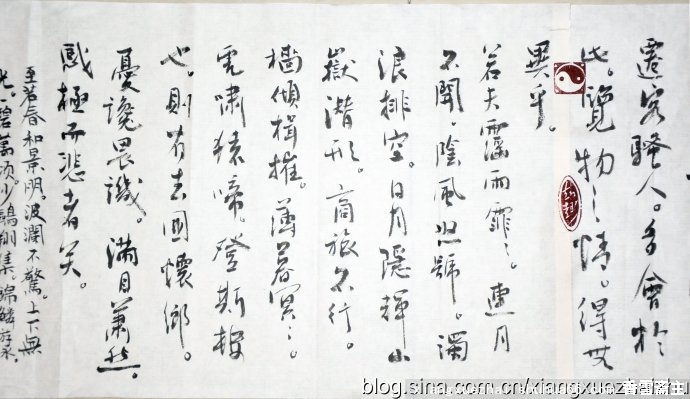 遷客騷人。多會於
此。覽物之情。得無
異乎。
若夫霪雨霏〻。連月
不開。陰風怒號。濁
浪排空。日月隱輝。山
嶽潛形。商旅不行。
檣傾楫摧。薄暮冥〻。
虎嘯猿啼。登斯樓
也。則有去國懷鄉。
憂讒畏譏。滿目蕭然。
感極而悲者矣。
至若春和景明。波瀾不驚。上下天
光。一碧萬頃。沙鷗翔集。錦鱗游泳。
blog.sina.com.cn/xiangxuez
香雪斋主